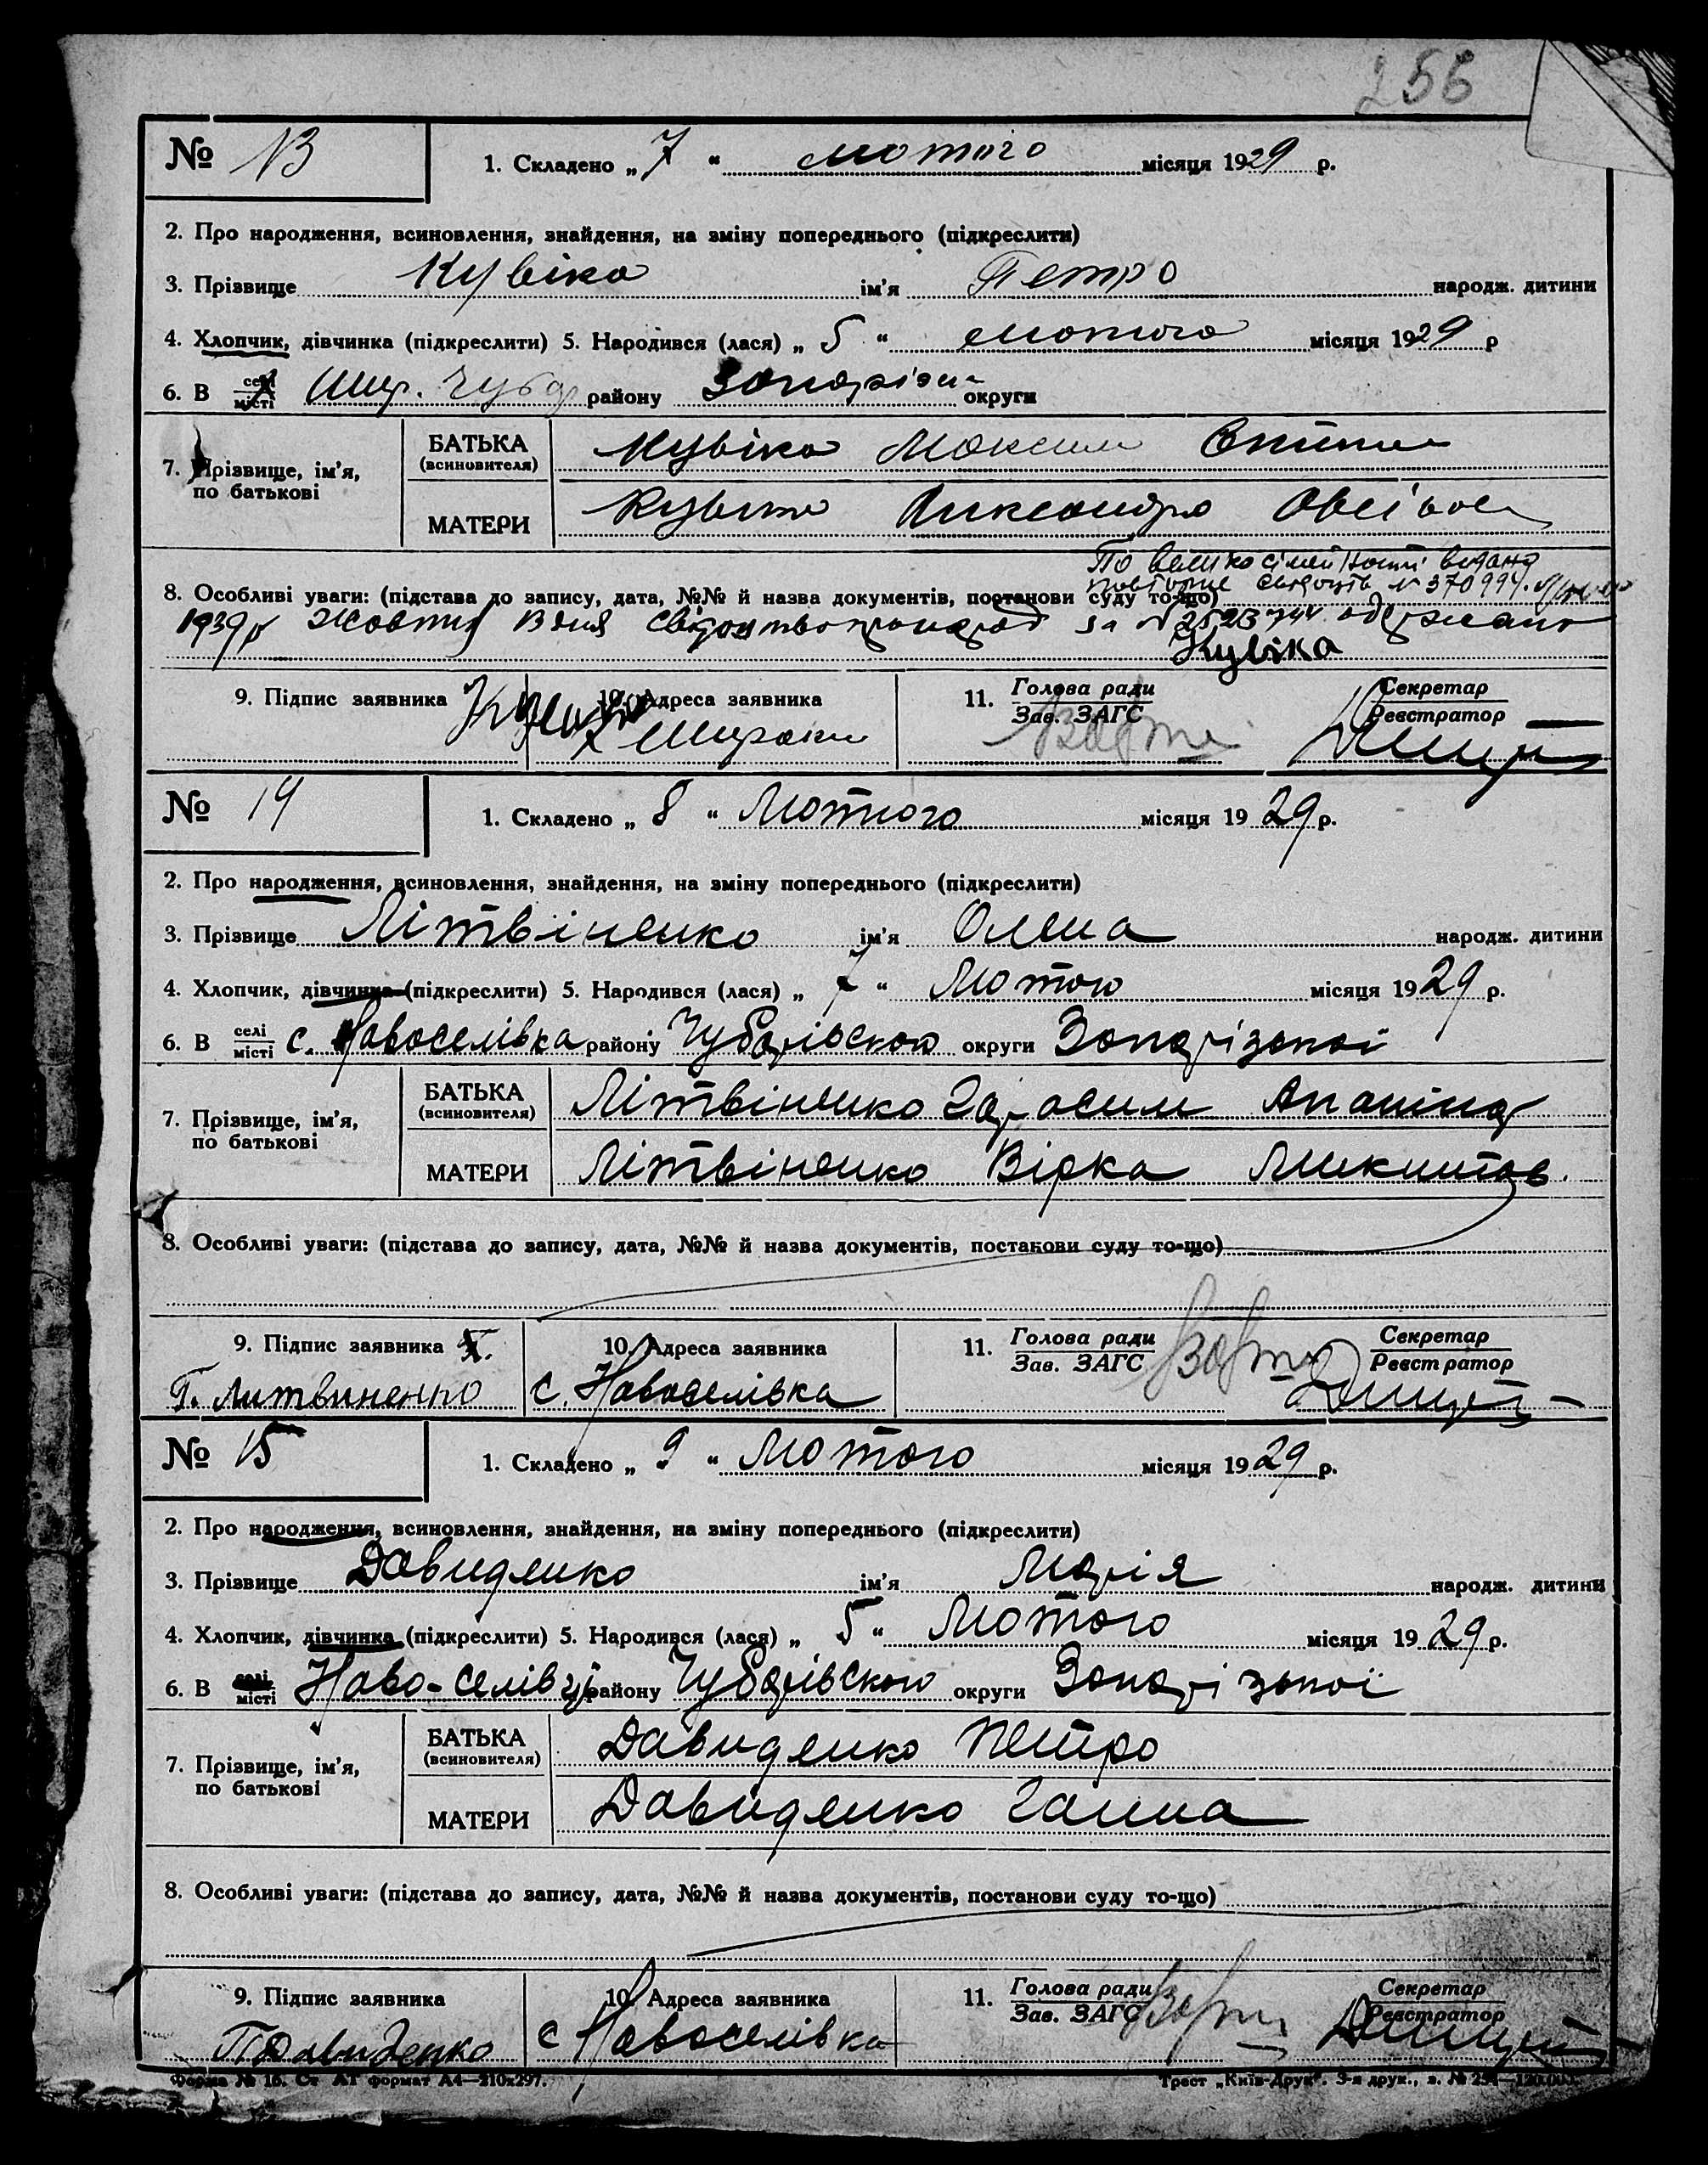 256
№ 13 1. Складено „ 7 “ лютого місяця 1929 р.
2. Про народження, всиновлення, знайдення, на зміну попереднього (підкреслити)
3. Прізвище Кувіка ім’я Петро народж. дитини
4. Хлопчик, дівчинка (підкреслити) 5. Народився (лася) „ 5 “ лютого місяця 1929 р
6. В селі місті Шир. Чубар району Запоріз округи
7. Прізвище, ім’я, по батькові
БАТЬКА (всиновителя) Кувіка Максим
МАТЕРИ Кувіка Олександра Овсіівс
По велико сімейности видано
повторне свідоцтв № 370994.
8. Особливі уваги: (підстава до запису, дата, №№ й назва документів, постанови суду то-що)
1939 р Жовтня 3 дня свідоцтво за № одержано
Кувіка
9. Підпис заявника 10. Адреса заявника 11. Голова ради Зав. ЗАГС Секретар Реєстратор
Широка
№ 14 1. Складено „ 8 “ Лютого місяця 1929 р.
2. Про народження, всиновлення, знайдення, на зміну попереднього (підкреслити)
3. Прізвище Літвіненко ім’я Олена народж. дитини
4. Хлопчик, дівчинка (підкреслити) 5. Народився (лася) „ 7 “ Лютого місяця 1929 р.
6. В селі місті с. Новоселівка району Чубарівського округи Запорізької
7. Прізвище, ім’я, по батькові
БАТЬКА (всиновителя) Літвіненко Гарасим Ананіяд
МАТЕРИ Літвіненко Вірка Микитов.
8. Особливі уваги: (підстава до запису, дата, №№ й назва документів, постанови суду то-що)
9. Підпис заявника 10. Адреса заявника 11. Голова ради Зав. ЗАГС Секретар Реєстратор
Г. Литвиненко с. Новоселівка
№ 15 1. Складено „ 9 “ Лютого місяця 1929 р.
2. Про народження, всиновлення, знайдення, на зміну попереднього (підкреслити)
3. Прізвище Давиденко ім’я Марія народж. дитини
4. Хлопчик, дівчинка (підкреслити) 5. Народився (лася) „ 5 “ Лютого місяця 1929 р.
6. В селі місті Ново-селівці району Чубарівського округи Запорізької
7. Прізвище, ім’я, по батькові
БАТЬКА (всиновителя) Давиденко Петро
МАТЕРИ Давиденко Ганна
8. Особливі уваги: (підстава до запису, дата, №№ й назва документів, постанови суду то-що)
9. Підпис заявника 10. Адреса заявника 11. Голова ради Зав. ЗАГС Секретар Реєстратор
П Давиденко с Новоселівка
Форма № 16. Ст АТ формат А4—210х297. Трест „Київ-Друк“. 3-я друк., з. №